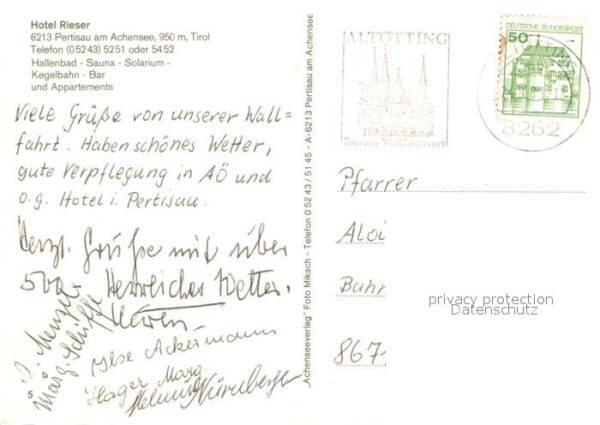 Hotel Rieser
6213 Pertisau am Achensee, 950 m, Tirol
Telefon (05243) 5251 oder 5452
Hallenbad - Sauna - Solarium -
Kegelbahn - Bar
und Appartements
Viele Grüße von unserer Wall=
fahrt. Haben schönes Wetter,
gute Verpflegung in AÖ und
o.g. Hotel i. Pertisau.
Herzl. Grüße mit über
Wetter.
Marg.
Ilse Ackermann
Hager Marg.
Helmut Nürnberger
5
"Achenseeverlag" Foto Miksch - Telefon 05243/5145 - A-6213 Pertisau am Achensee
ALTÖTTING
Bayerns Wallfahrtsort
DEUTSCHE BUNDESPOST
50
8262
Pfarrer
Aloi
Bahn
867-
privacy protection
Datenschutz